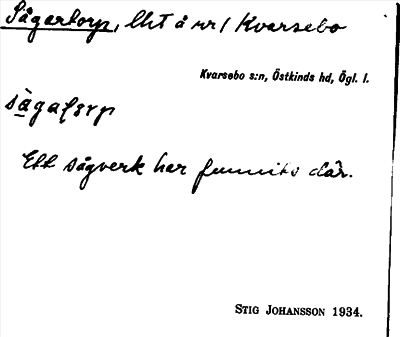 Sågartorp, lht å nr 1 Kvarsebo
Kvarsebo s:n, Östkinds hd, Ögl. l.
Ett sågverk har funnits där.
STIG JOHANSSON 1934.